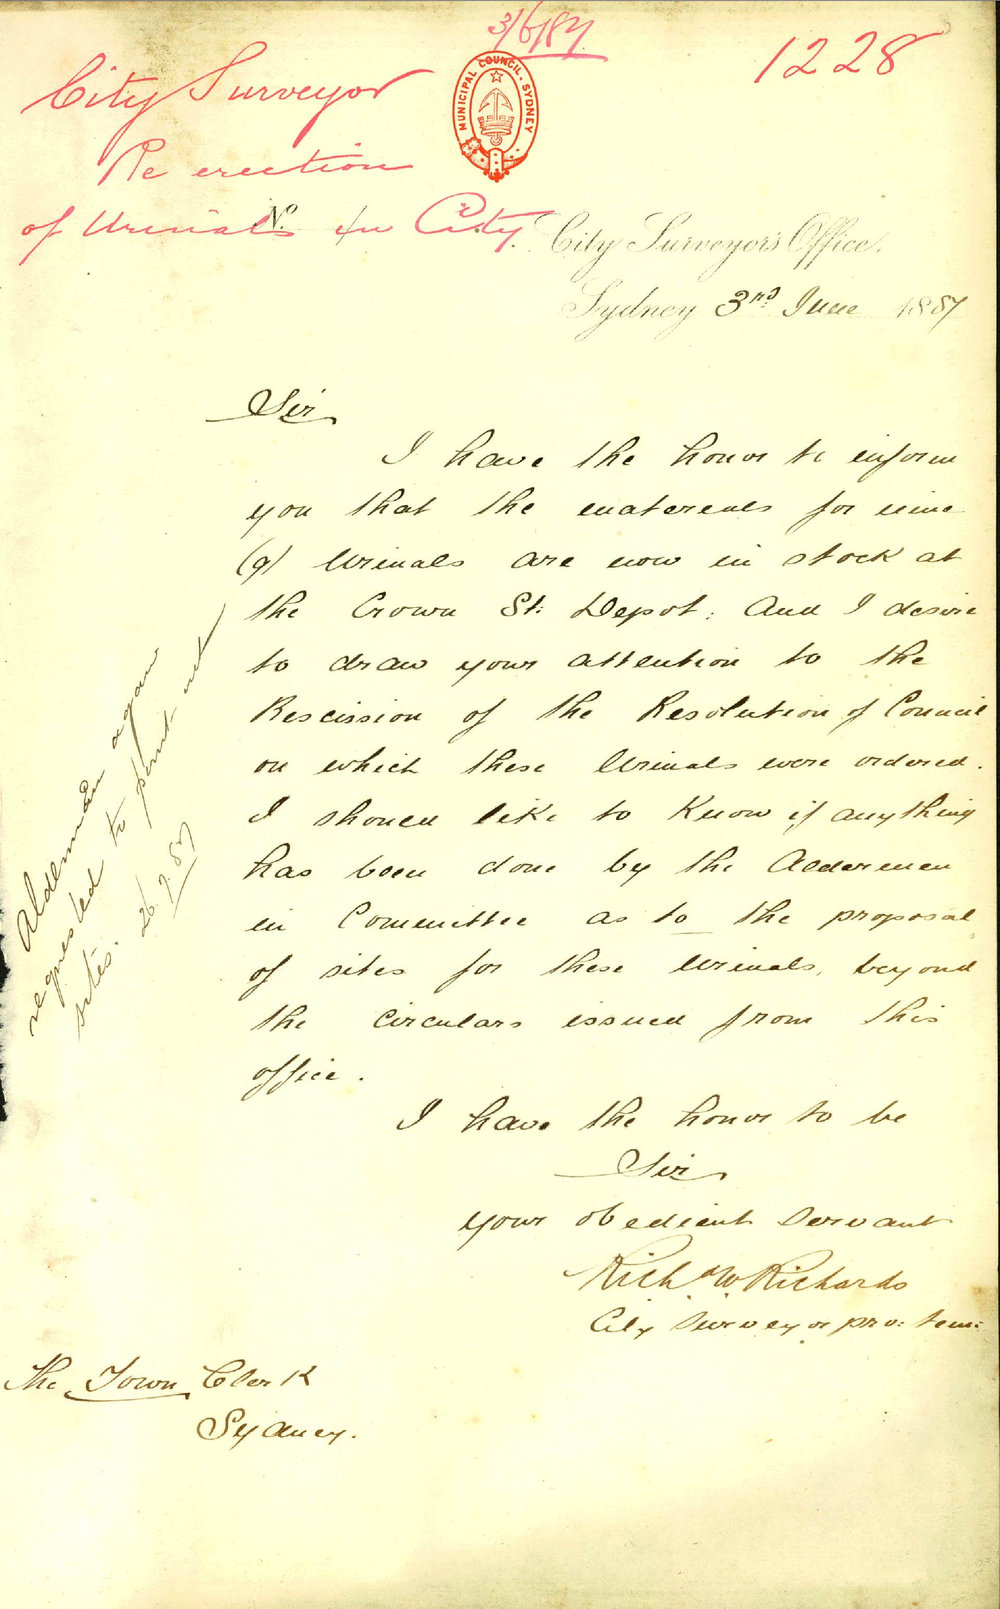 3/6/87.
1228
City Surveyor
Re erection
of Urinals in City.
MUNICIPAL COUNCIL. SYDNEY
No.
City Surveyor's Office.
Sydney 3rd June 1887
Sir
I have the honor to inform
you that the materials for nine
(9) Urinals are now in stock at
the Crown St: Depot: And I desire
to draw your attention to the
Rescission of the Resolution of Council
on which these Urinals were ordered.
I should like to know if anything
has been done by the Aldermen
in Committee as to the proposal
of sites for these Urinals, beyond
the circulars issued from this
office.
I have the honor to be
Sir
your obedient servant
Richd W Richards
City Surveyor pro: tem:
The Town Clerk
Sydney.
Alderman again
requested to point out
sites. 26.7.87